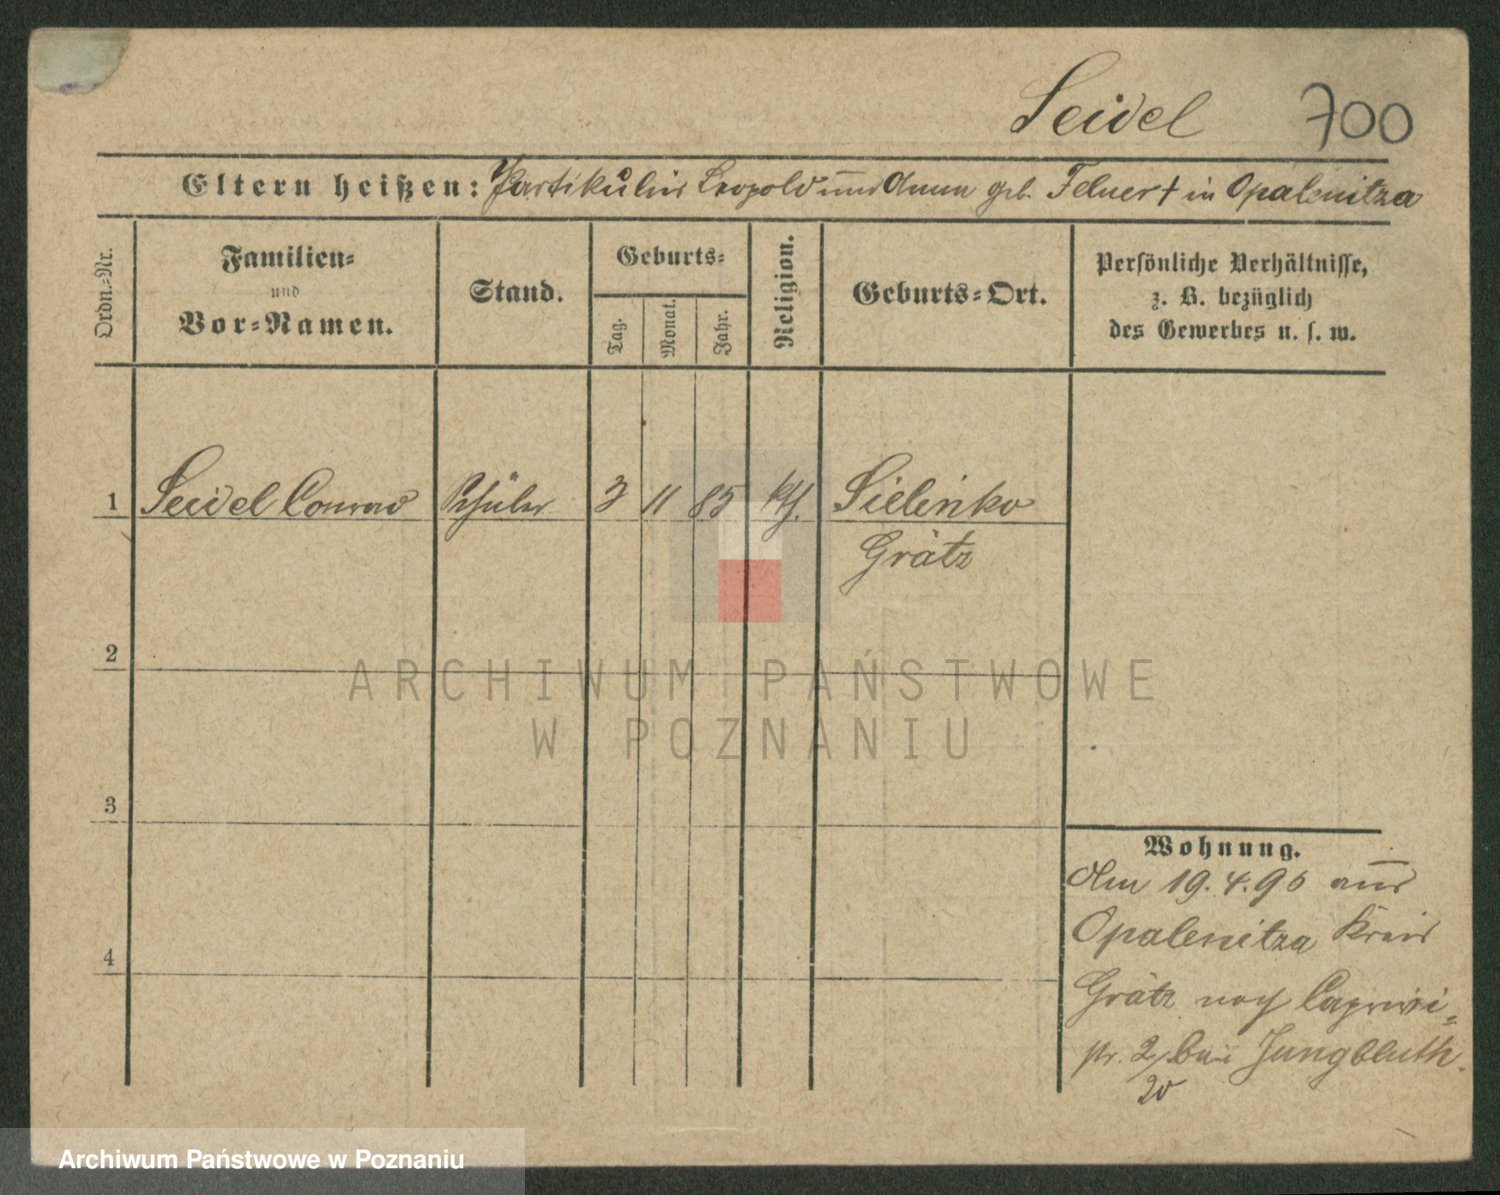 Seidel 700
Eltern heißen: Partikulier Leopold und Anna geb. Felner † in Opalenitza
Ordn.-Nr.
Familien-
und
Vor-Namen.
Stand.
Geburts-
Tag.
Monat.
Jahr.
Religion.
Geburts-Ort.
Persönliche Verhältnisse,
z. B. bezüglich
des Gewerbes u. s. w.
1 Seidel Conrad Schüler 3 11 85 kth. Sielinko
Grätz
2
3
4
Wohnung.
Am 19.4.96 aus
Opalenitza Kreis
Grätz nach Caprivi-
str. 2, bei Jungbluth.
ARCHIWUM PAŃSTWOWE
W POZNANIU
Archiwum Państwowe w Poznaniu